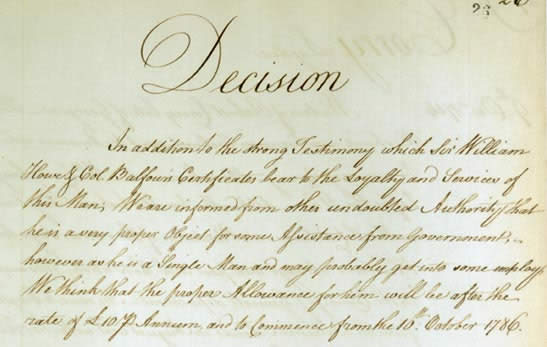 Decision
In addition to the strong Testimony which Sir William
Howe & Col. Balfour's Certificates bear to the Loyalty and Services of
this Man, We are informed from other undoubted Authority that
he is a very proper Object for some Assistance from Government,
however as he is a Single Man and may probably get into some employ,
We think that the proper Allowance for him will be after the
rate of £10 P Annum, and to Commence from the 10th. October 1786.